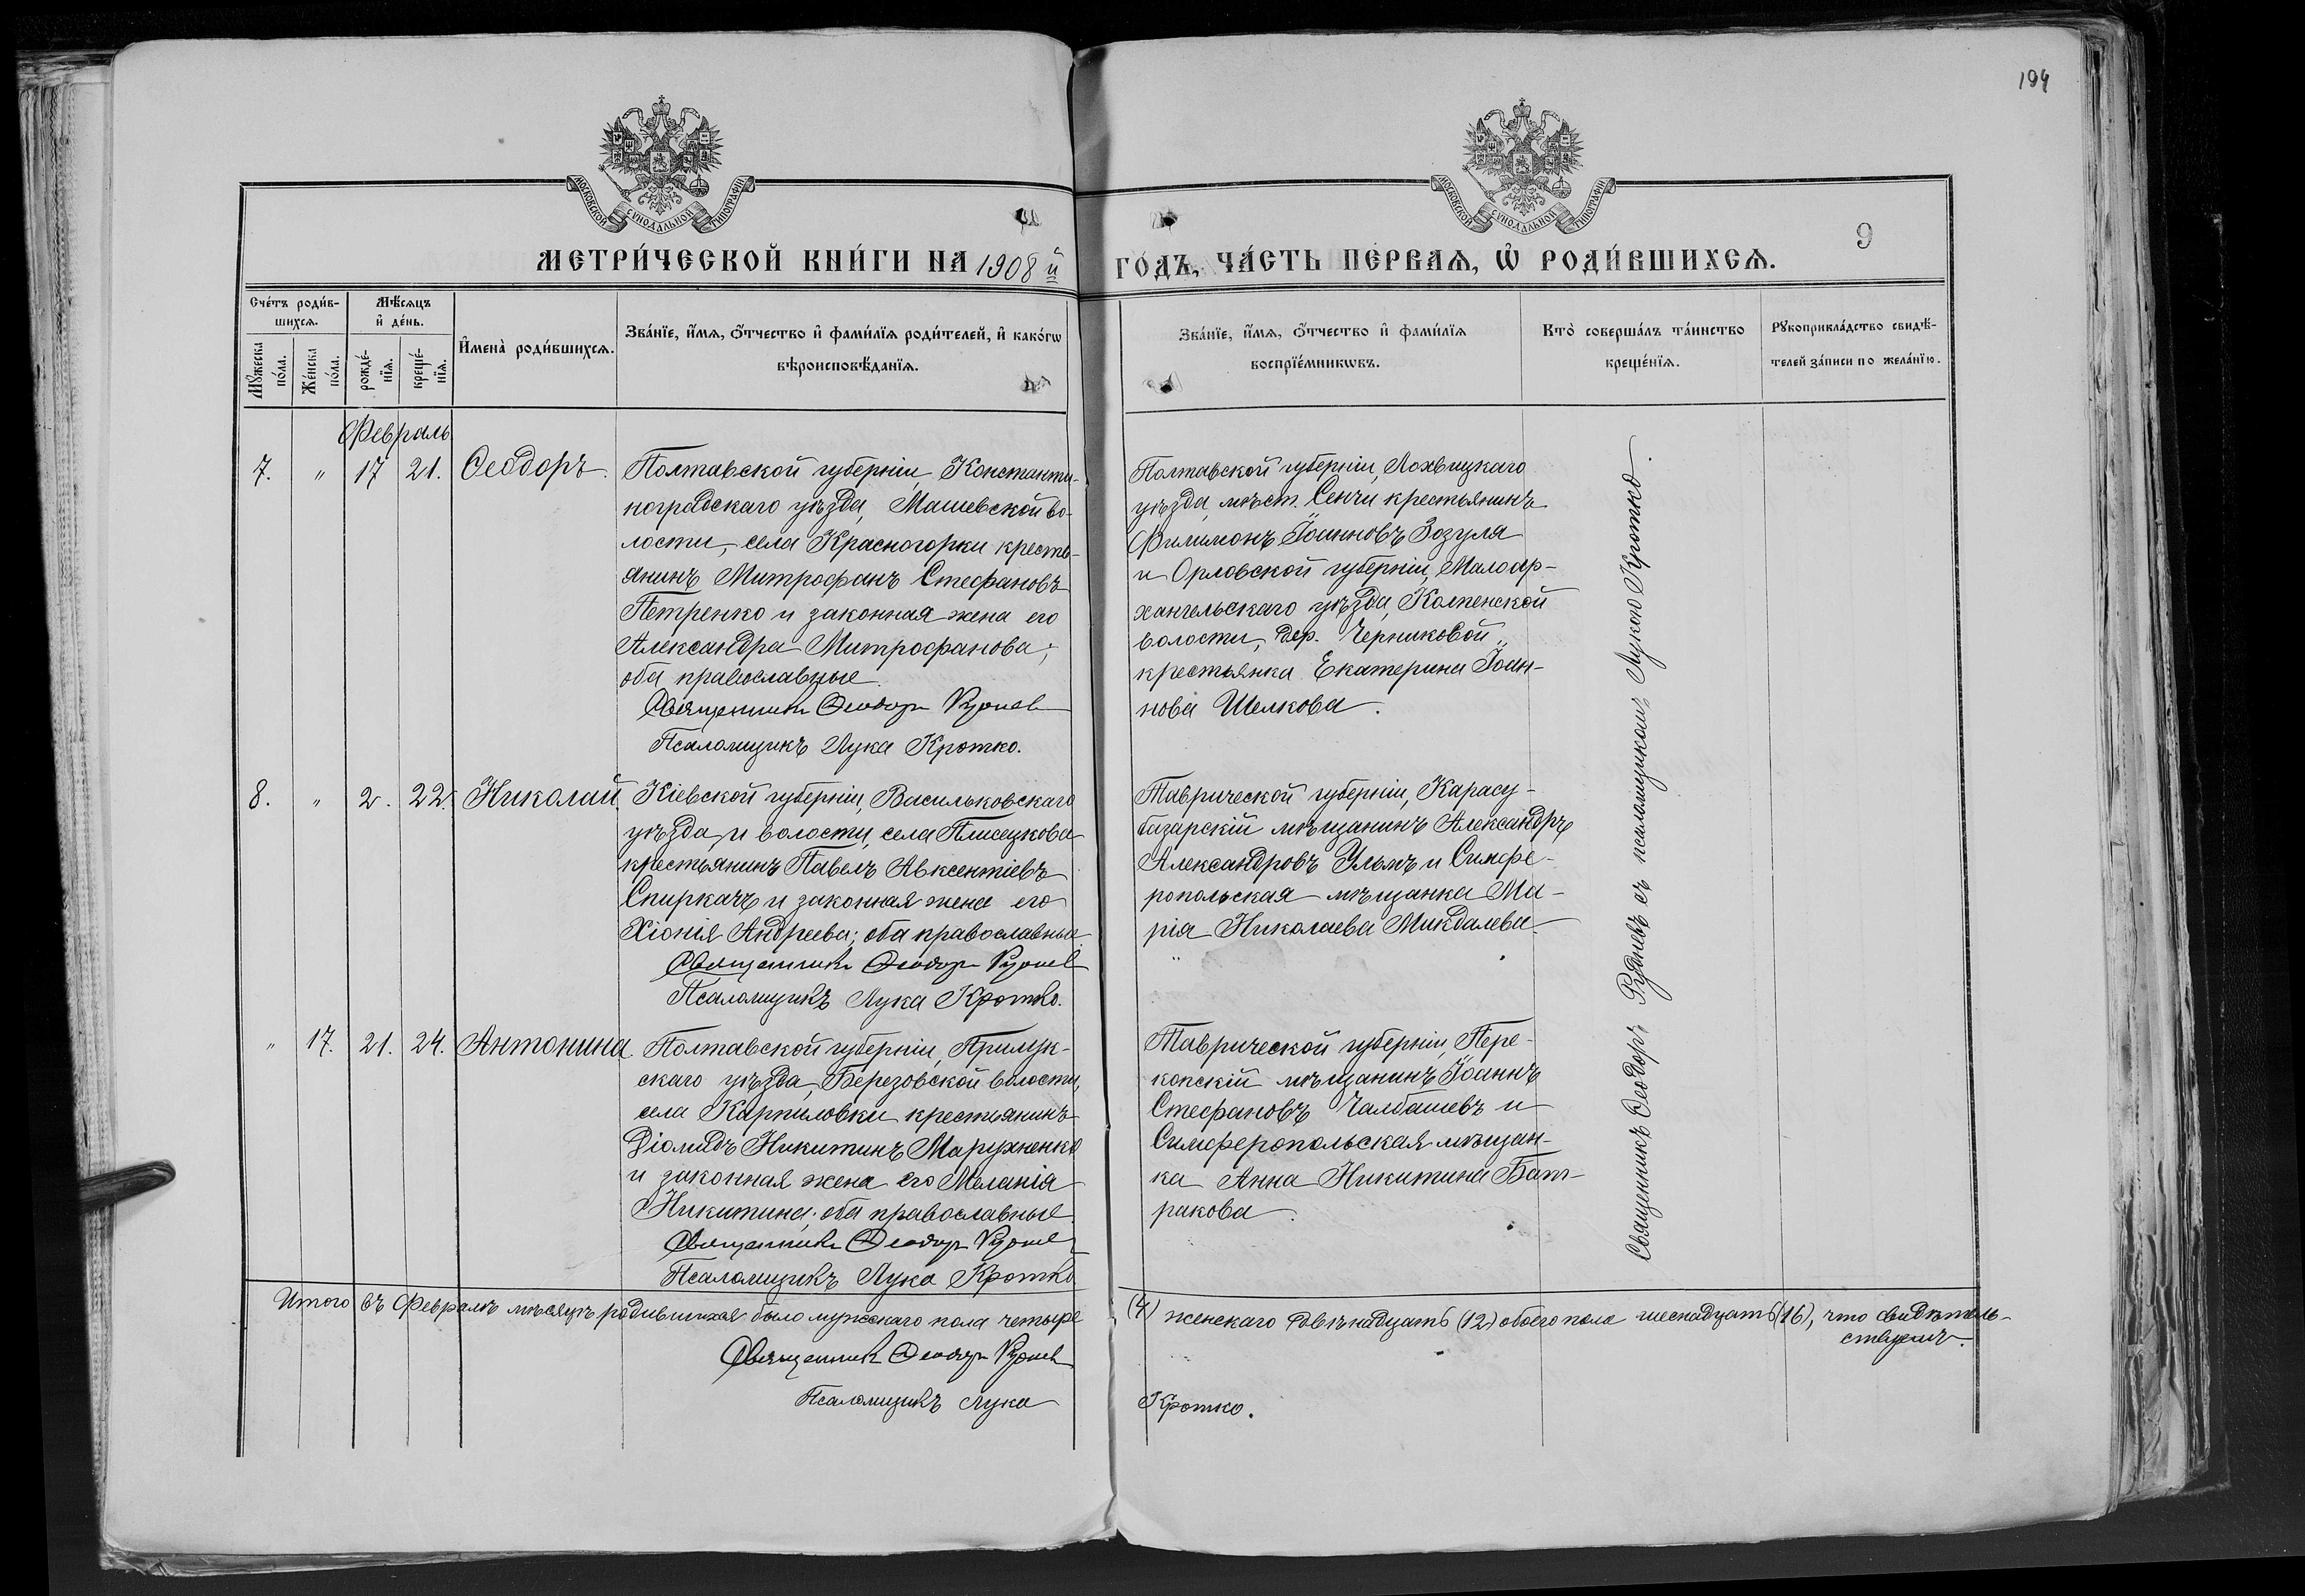 194
МОСКОВСКОЙ СУНОДАЛЬНОЙ ТИПОГРАФІИ
МОСКОВСКОЙ СУНОДАЛЬНОЙ ТИПОГРАФІИ
9
МЕТРИ́ЧЕСКОЙ КНИ́ГИ НА 1908 й ГО́ДЪ, ЧА́СТЬ ПЕ́РВАѦ, Ѡ҆ РОДИ́ВШИХСѦ.
Сче́тъ роди́в-
шихсѧ.
Мѣ́сѧцъ
и҆ де́нь.
И҆мена̀ роди́вшихсѧ.
Зва́нїе, и҆́мѧ, ѻ҆́тчество и҆ фами́лїѧ роди́телей, и҆ како́гѡ
вѣроисповѣ́данїѧ.
Мꙋ́жеска
по́ла.
Же́нска
по́ла.
рожде́-
нїѧ.
креще́-
нїѧ.
Зва́нїе, и҆́мѧ, ѻ҆́тчество и҆ фами́лїѧ
воспрїе́мникѡвъ.
Кто̀ соверша́лъ та́инство
креще́нїѧ.
Рꙋкоприкла́дство свидѣ́-
телей за́писи по жела́нїю.
Февраль
7. " 17 21. Ѳеодоръ.
Полтавской губерніи, Константи-
ноградскаго уѣзда, Машевской во-
лости, села Красногорки кресть-
янинъ Митрофанъ Стефановъ
Петренко и законная жена его
Александра Митрофанова;
оба православные.
Священникъ Ѳеодоръ Руднев
Псаломщикъ Лука Кротко.
Полтавской губерніи, Лохвицкаго
уѣзда, мѣст. Сенчи крестьянинъ
Филимонъ Іоанновъ Зозуля
и Орловской губерніи, Малоар-
хангельскаго уѣзда, Колпенской
волости, дер. Черниковой
крестьянка Екатерина Іоан-
нова Шелкова.
8. " 2. 22. Николай
Кіевской губерніи, Васильковскаго
уѣзда и волости, села Плисецкова
крестьянинъ Павелъ Авксентіевъ
Спиркачъ и законная жена его
Хіонія Андреева; оба православные.
Священникъ Ѳеодоръ Руднев
Псаломщикъ Лука Кротко.
Таврической губерніи, Карасу-
базарскій мѣщанинъ Александръ
Александровъ Ульмъ и Симфе-
ропольская мѣщанка Ма-
рія Николаева Микдалева
" 17. 21. 24. Антонина.
Полтавской губерніи, Прилук-
скаго уѣзда, Березовской волости,
села Карпиловки крестьянинъ
Діомидъ Никитинъ Марухненко
и законная жена его Меланія
Никитина; оба православные.
Священникъ Ѳеодоръ Руднев
Псаломщикъ Лука Кротко
Таврической губерніи, Пере-
копскій мѣщанинъ Іоаннъ
Стефановъ Чалбашевъ и
Симферопольская мѣщан-
ка Анна Никитина Бат-
ракова.
Священникъ Ѳеодоръ Рудневъ съ псаломщикомъ Лукою Кротко.
Итого въ Февралѣ мѣсяцѣ родившихся было мужскаго пола четыре (4) женскаго двѣнадцать (12) обоего пола шеснадцать (16), что свидѣтель-
ствуемъ.
Священникъ Ѳеодоръ Руднев
Псаломщикъ Лука Кротко.